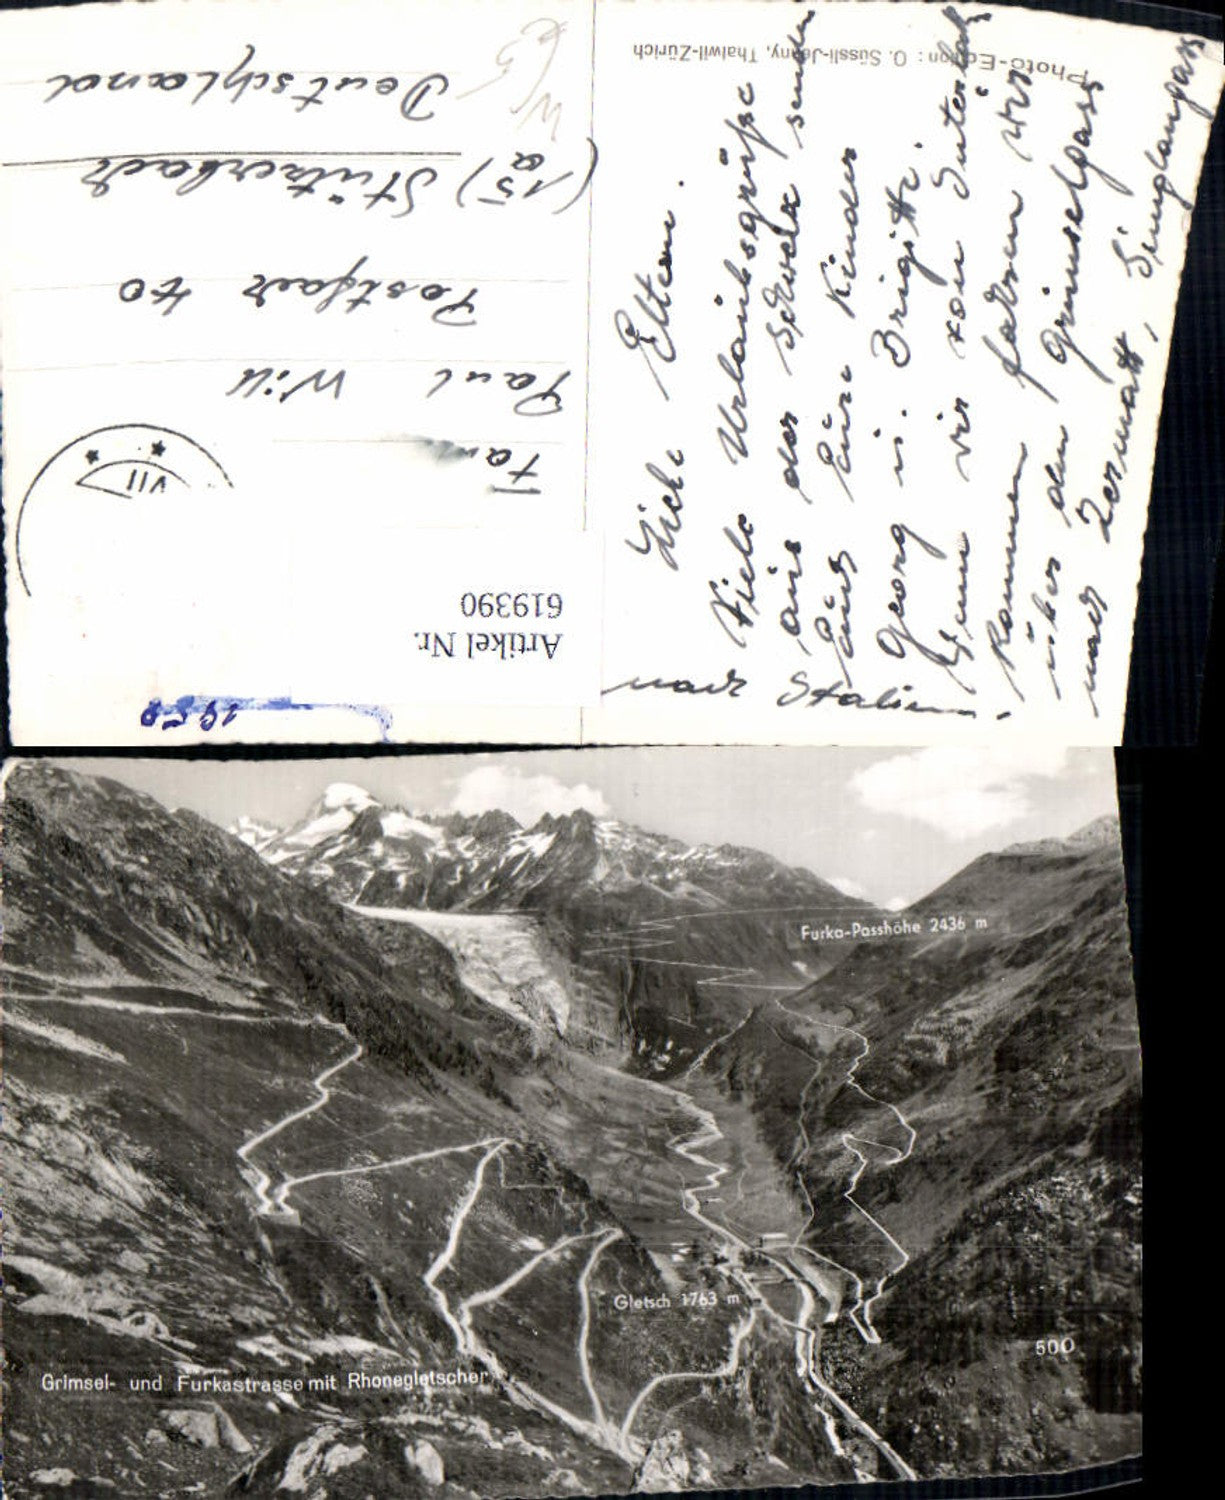 Photo-Edition: O. Süssli-Jenny, Thalwil-Zürich
Liebe Eltern.
Viele Urlaubsgrüße
aus der Schweiz senden
Euch Eure Kinder
Georg u. Brigitte.
wir von
kommen fahren wir
über den Grimselpass
nach Zermatt, Simplonpass
nach Italien.
Artikel Nr.
619390
1959
VII
Fam
Paul Will
Postfach 40
(15a) Stützerbach
Deutschland
Furka-Passhöhe 2436 m
Gletsch 1763 m
500
Grimsel- und Furkastrasse mit Rhonegletscher